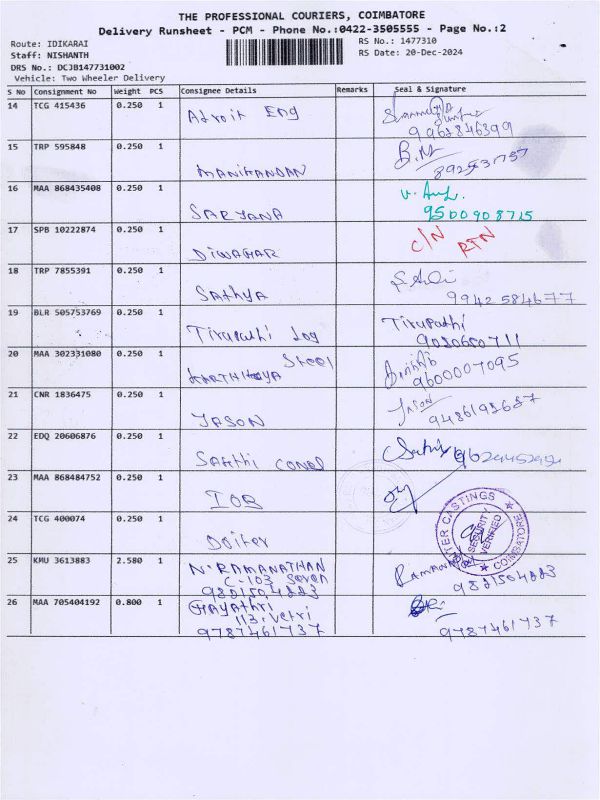 THE PROFESSIONAL COURIERS, COIMBATORE
Delivery Runsheet - PCM - Phone No.:0422-3505555 - Page No.:2
Route: IDIKARAI
Staff: NISHANTH
DRS No.: DCJB147731002
Vehicle: Two Wheeler Delivery
RS No.: 1477310
RS Date: 20-Dec-2024
S No Consignment No Weight PCS Consignee Details Remarks Seal & Signature
14 TCG 415436 0.250 1 Atroit Eng
9962846399
15 TRP 595848 0.250 1 MANIKANDAN B.M
16 MAA 868435408 0.250 1 SARYANA
9500908715
17 SPB 10222874 0.250 1 DIWAGAR C/N RTN
18 TRP 7855391 0.250 1 SATHYA
9942584677
19 BLR 505753769 0.250 1 Tirupathi Log Tirupathi
9080650711
20 MAA 302331080 0.250 1 KARTHIKEYA Steel
9600007095
21 CNR 1836475 0.250 1 JASON JASON
9486193687
22 EDQ 20606876 0.250 1 SAKTHI
23 MAA 868484752 0.250 1 IOB
24 TCG 400074 0.250 1
CASTINGS
SECURITY
VERIFIED
COIMBATORE
25 KMU 3613883 2.580 1 N.RAMANATHAN
C-103, Seven
9821504883
Ramanathan
9821504883
26 MAA 705404192 0.800 1 Gayathri
113, Vetri
9787461737
9787461737